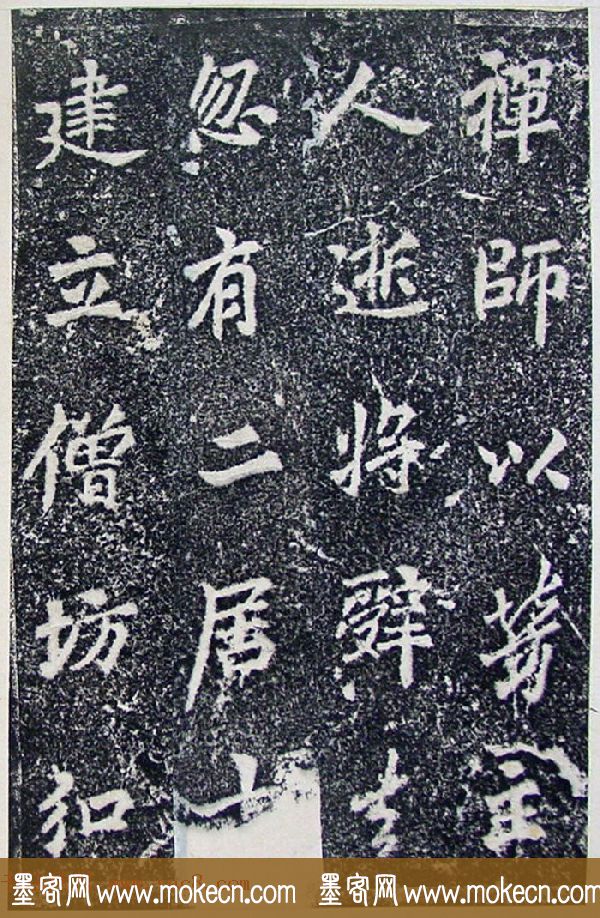 禪師以勞主
人逝將辭去
忽有二居士
建立僧坊弘
墨客网 www.mokecn.com 墨客网 www.mokecn.com